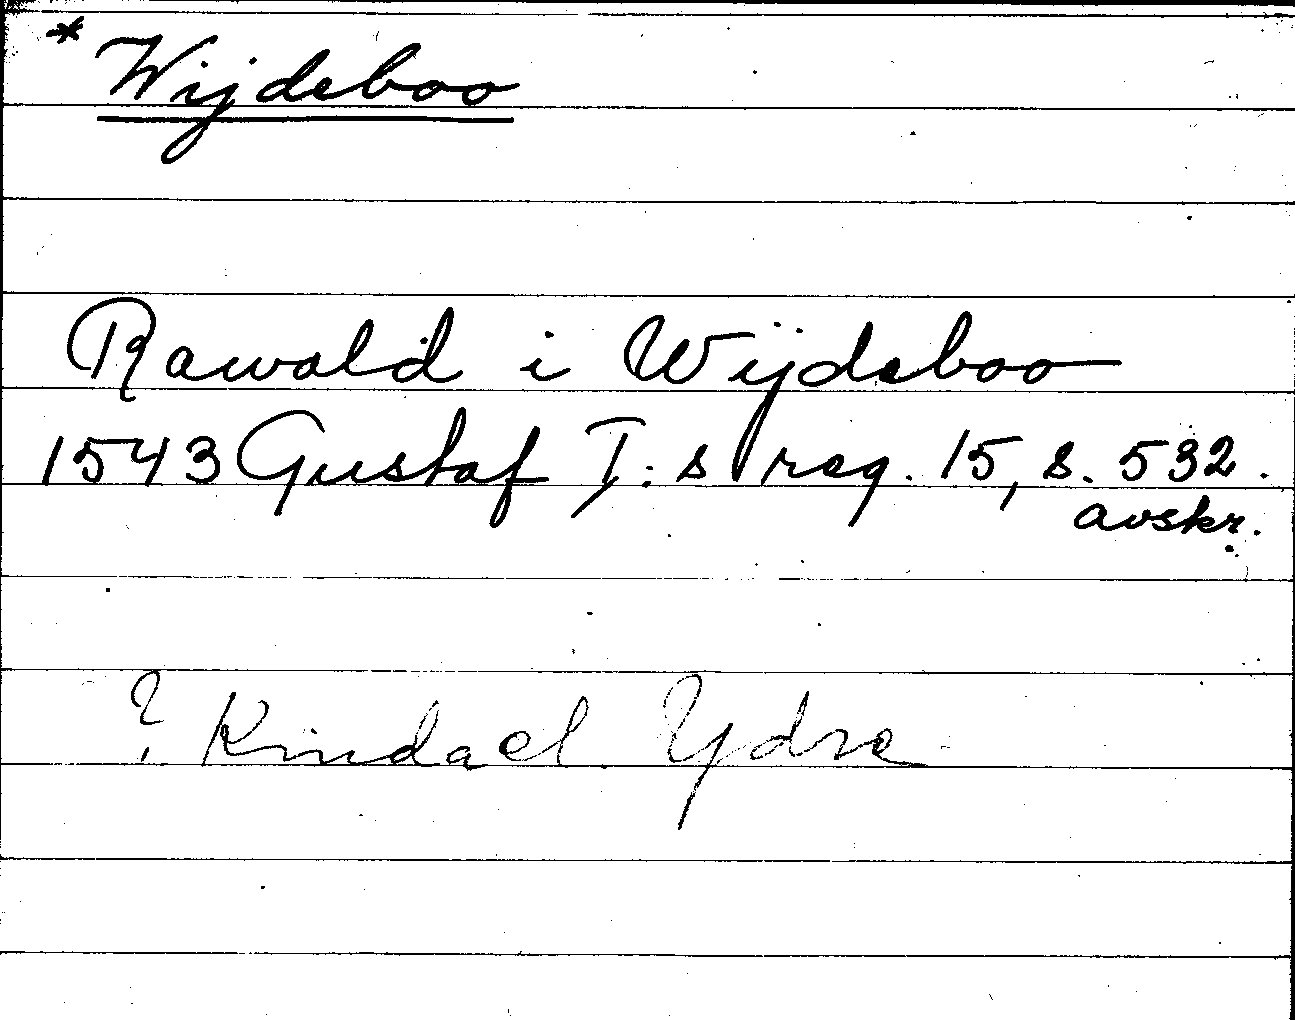 * Wijdeboo
Rawald i Wijdeboo
1543 Gustaf I:s reg. 15, s. 532.
avskr.
? Kinda el. Ydre